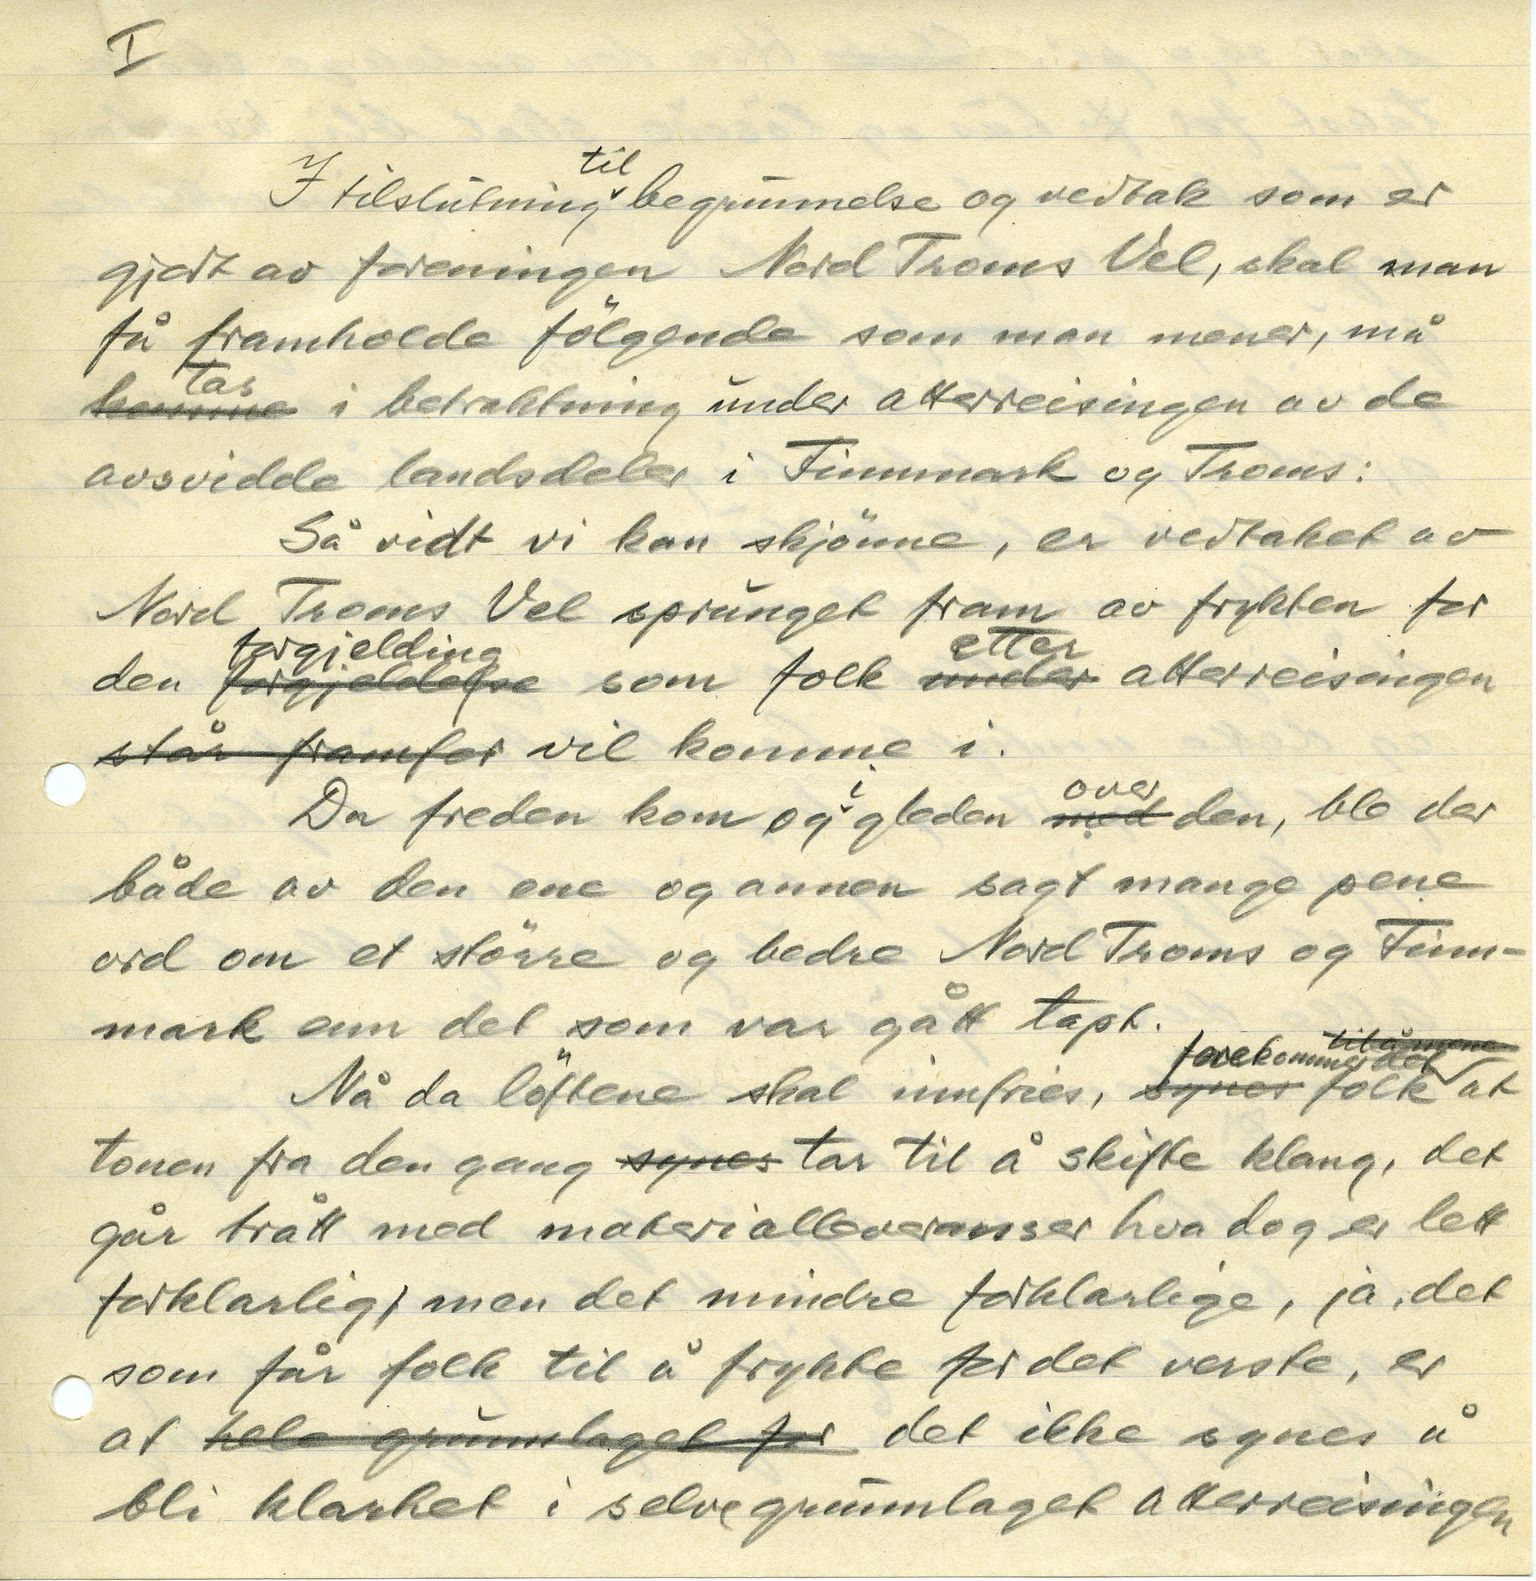 I
I tilslutning til begrunnelse og vedtak som er
gjort av foreningen Nord Troms Vel, skal man
få framholde följgende som man mener, må
komme tas i betraktning under atterreisingen av de
avsvidde landsdeler i Finnmark og Troms:
Så vidt vi kan skjönne, er vedtaket av
Nord Troms Vel sprunget fram av frykten for
den forgjeldelse forgjelding som folk under etter atterreisingen
står framfor vil komme i.
Da freden kom og i gleden med over den, ble der
både av den ene og annen sagt mange pene
ord om et större og bedre Nord Troms og Finn-
mark enn det som var gått tapt.
til å mene
Nå da löftene skal innfries, synes forekommer det folk at
tonen fra den gang synes tar til å skifte klang, det
går trått med materialleveranser hva dog er lett
forklarlig, men det mindre forklarlige, ja, det
som får folk til å frykte for det verste, er
at hele grunnlaget for det ikke synes å
bli klarhet i selve grunnlaget atterreisingen